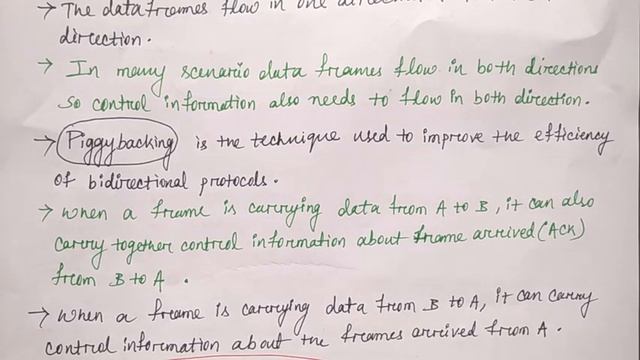 → The data frames flow in one
direction.
→ In many scenario data frames flow in both directions
so control information also needs to flow in both direction.
→ Piggybacking is the technique used to improve the efficiency
of bidirectional protocols.
→ when a frame is carrying data from A to B, it can also
carry together control information about frame arrived (ACK)
from B to A .
→ when a frame is carrying data from B to A, it can carry
control information about the frames arrived from A .